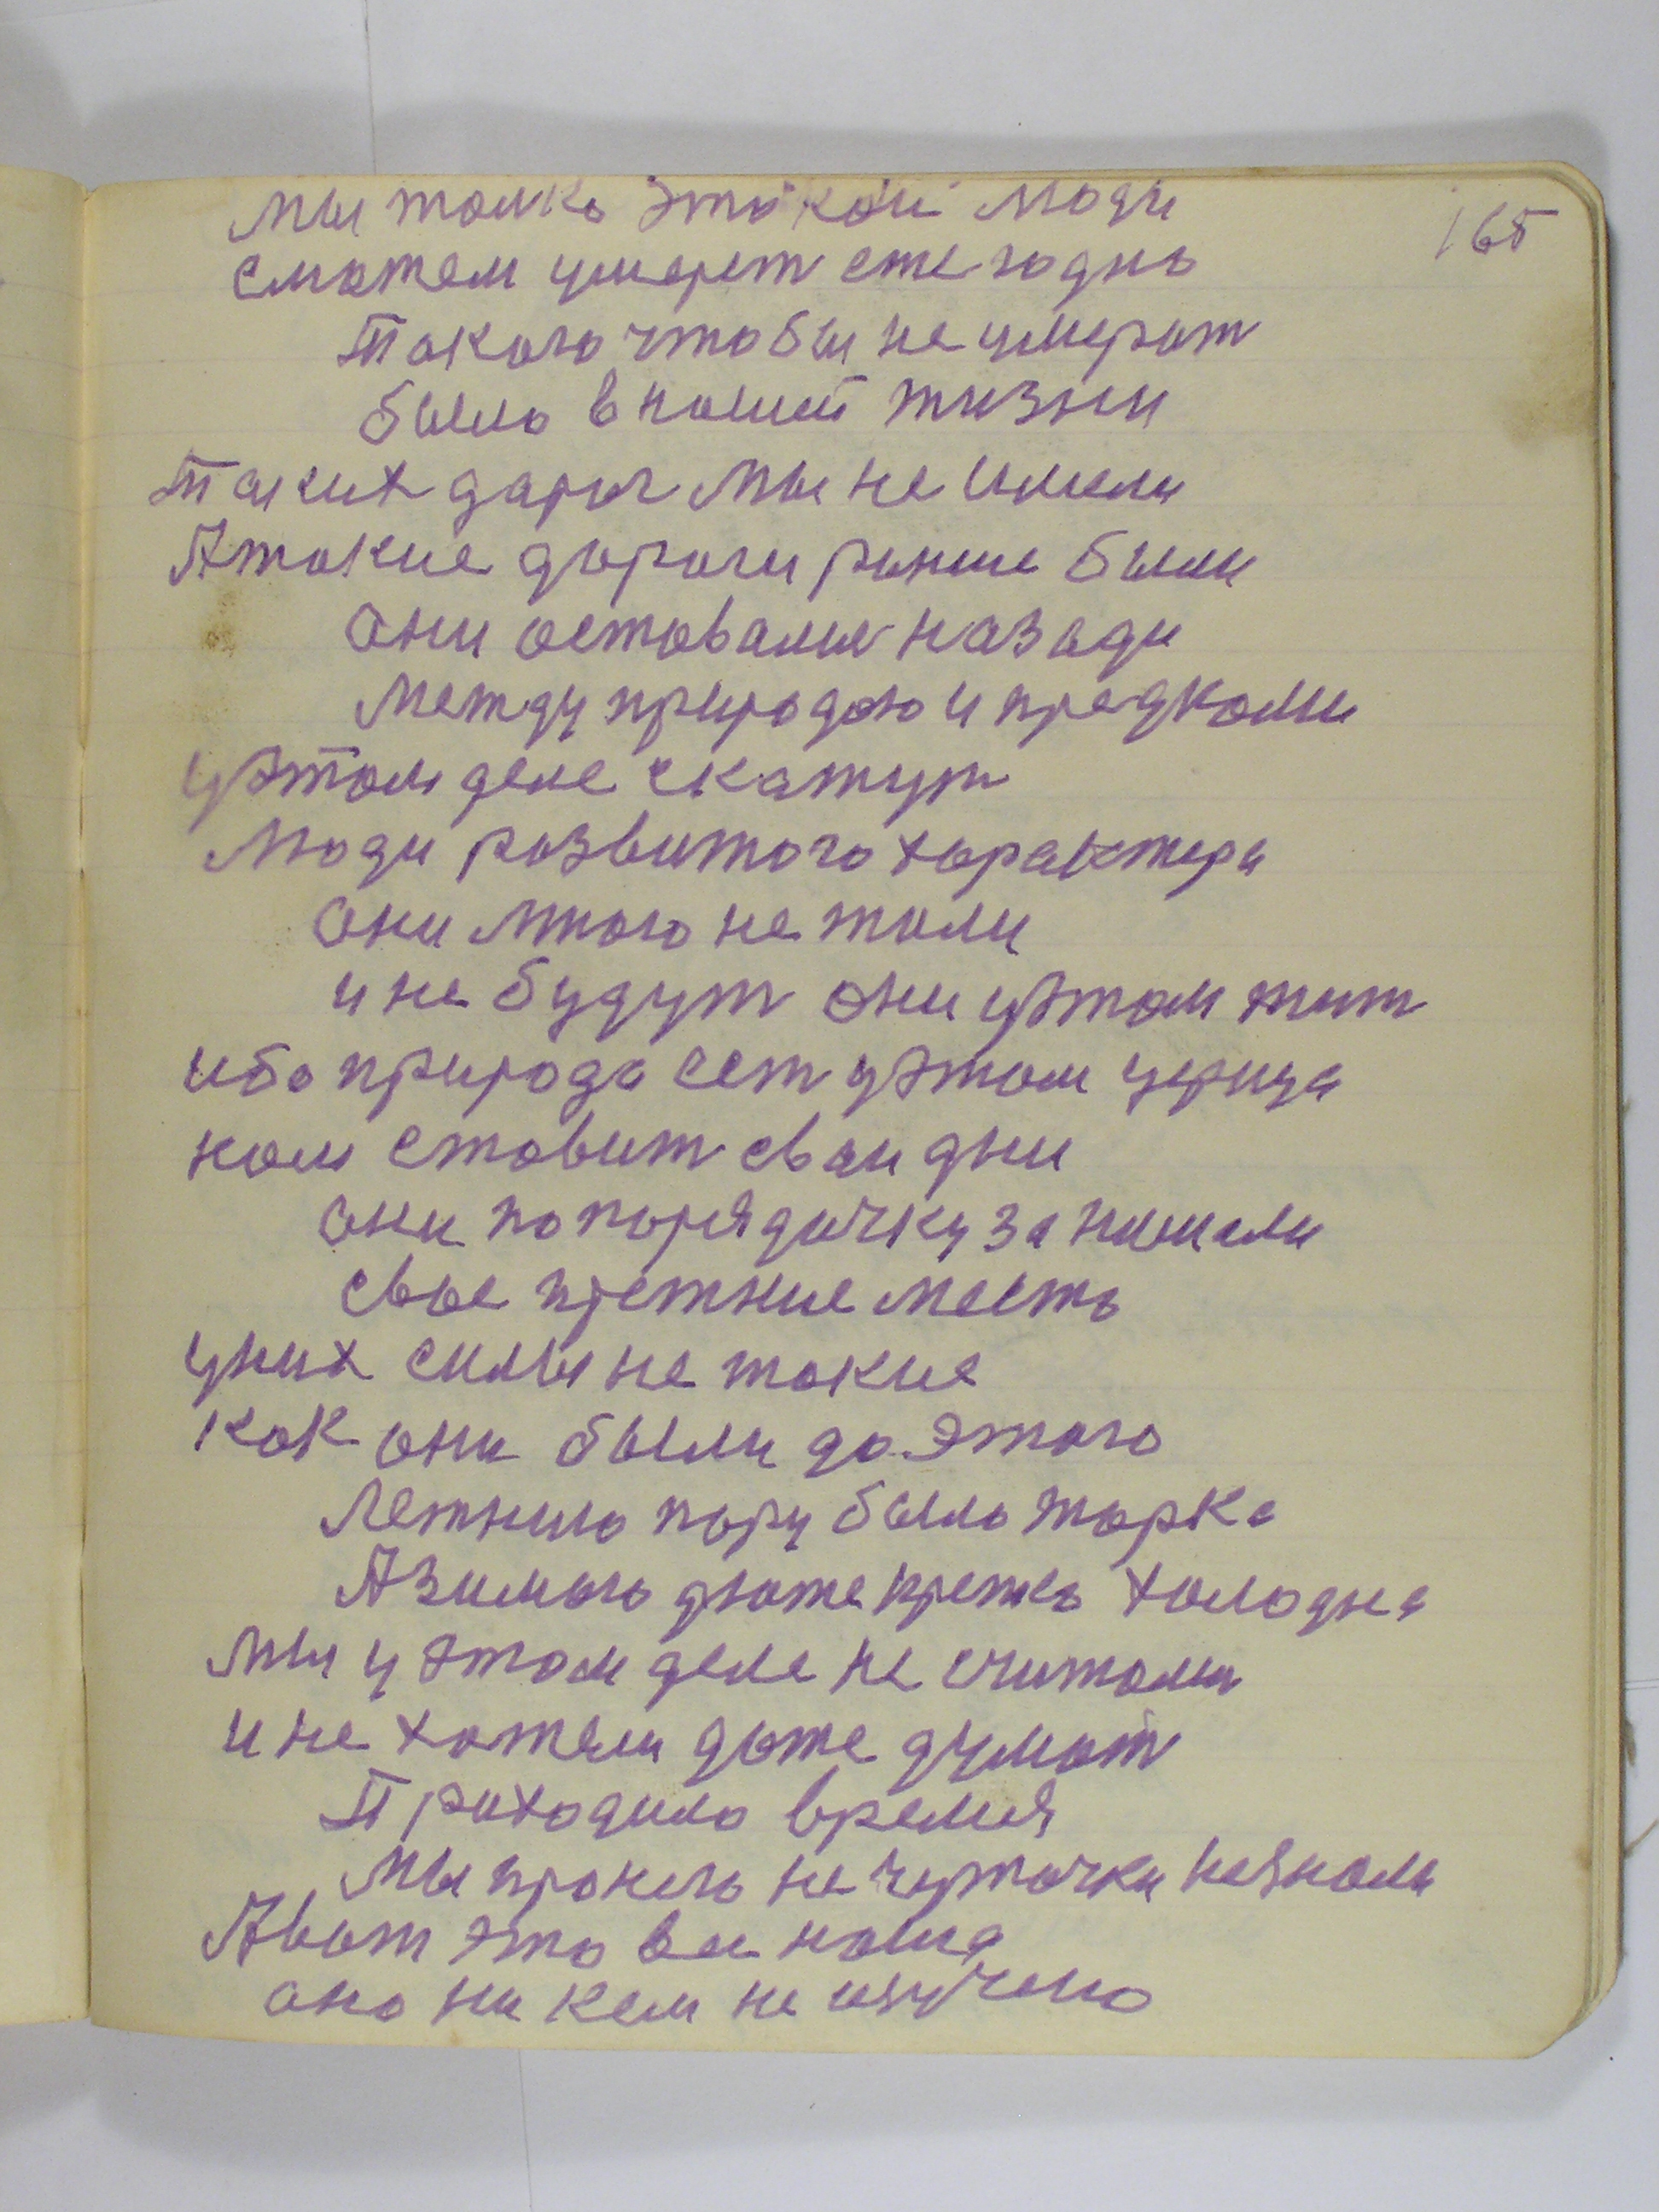 165
мы толко этакои люди
сможем умерет ежегодно
Такого чтобы не умерат
было в нашей жизни
Таких дарог мы не имели
А такие дороги раньше были
они оставалис назади
между природою и предками
у этом деле скажут
люди развитого характера
они много не жали
и не будут они у этом жит
ибо природа сест у этом
ком ставит сваи дни
они по порядочку занимали
свое прежние месть
у них силы не такие
как они были до этого
Летнию пору было жарка
А зимою даже холодна
мы у этом деле не считали
и не хотели даже думат
Приходило время
мы не чуточки не знали
А вот это все наше
оно ни кем не изучено